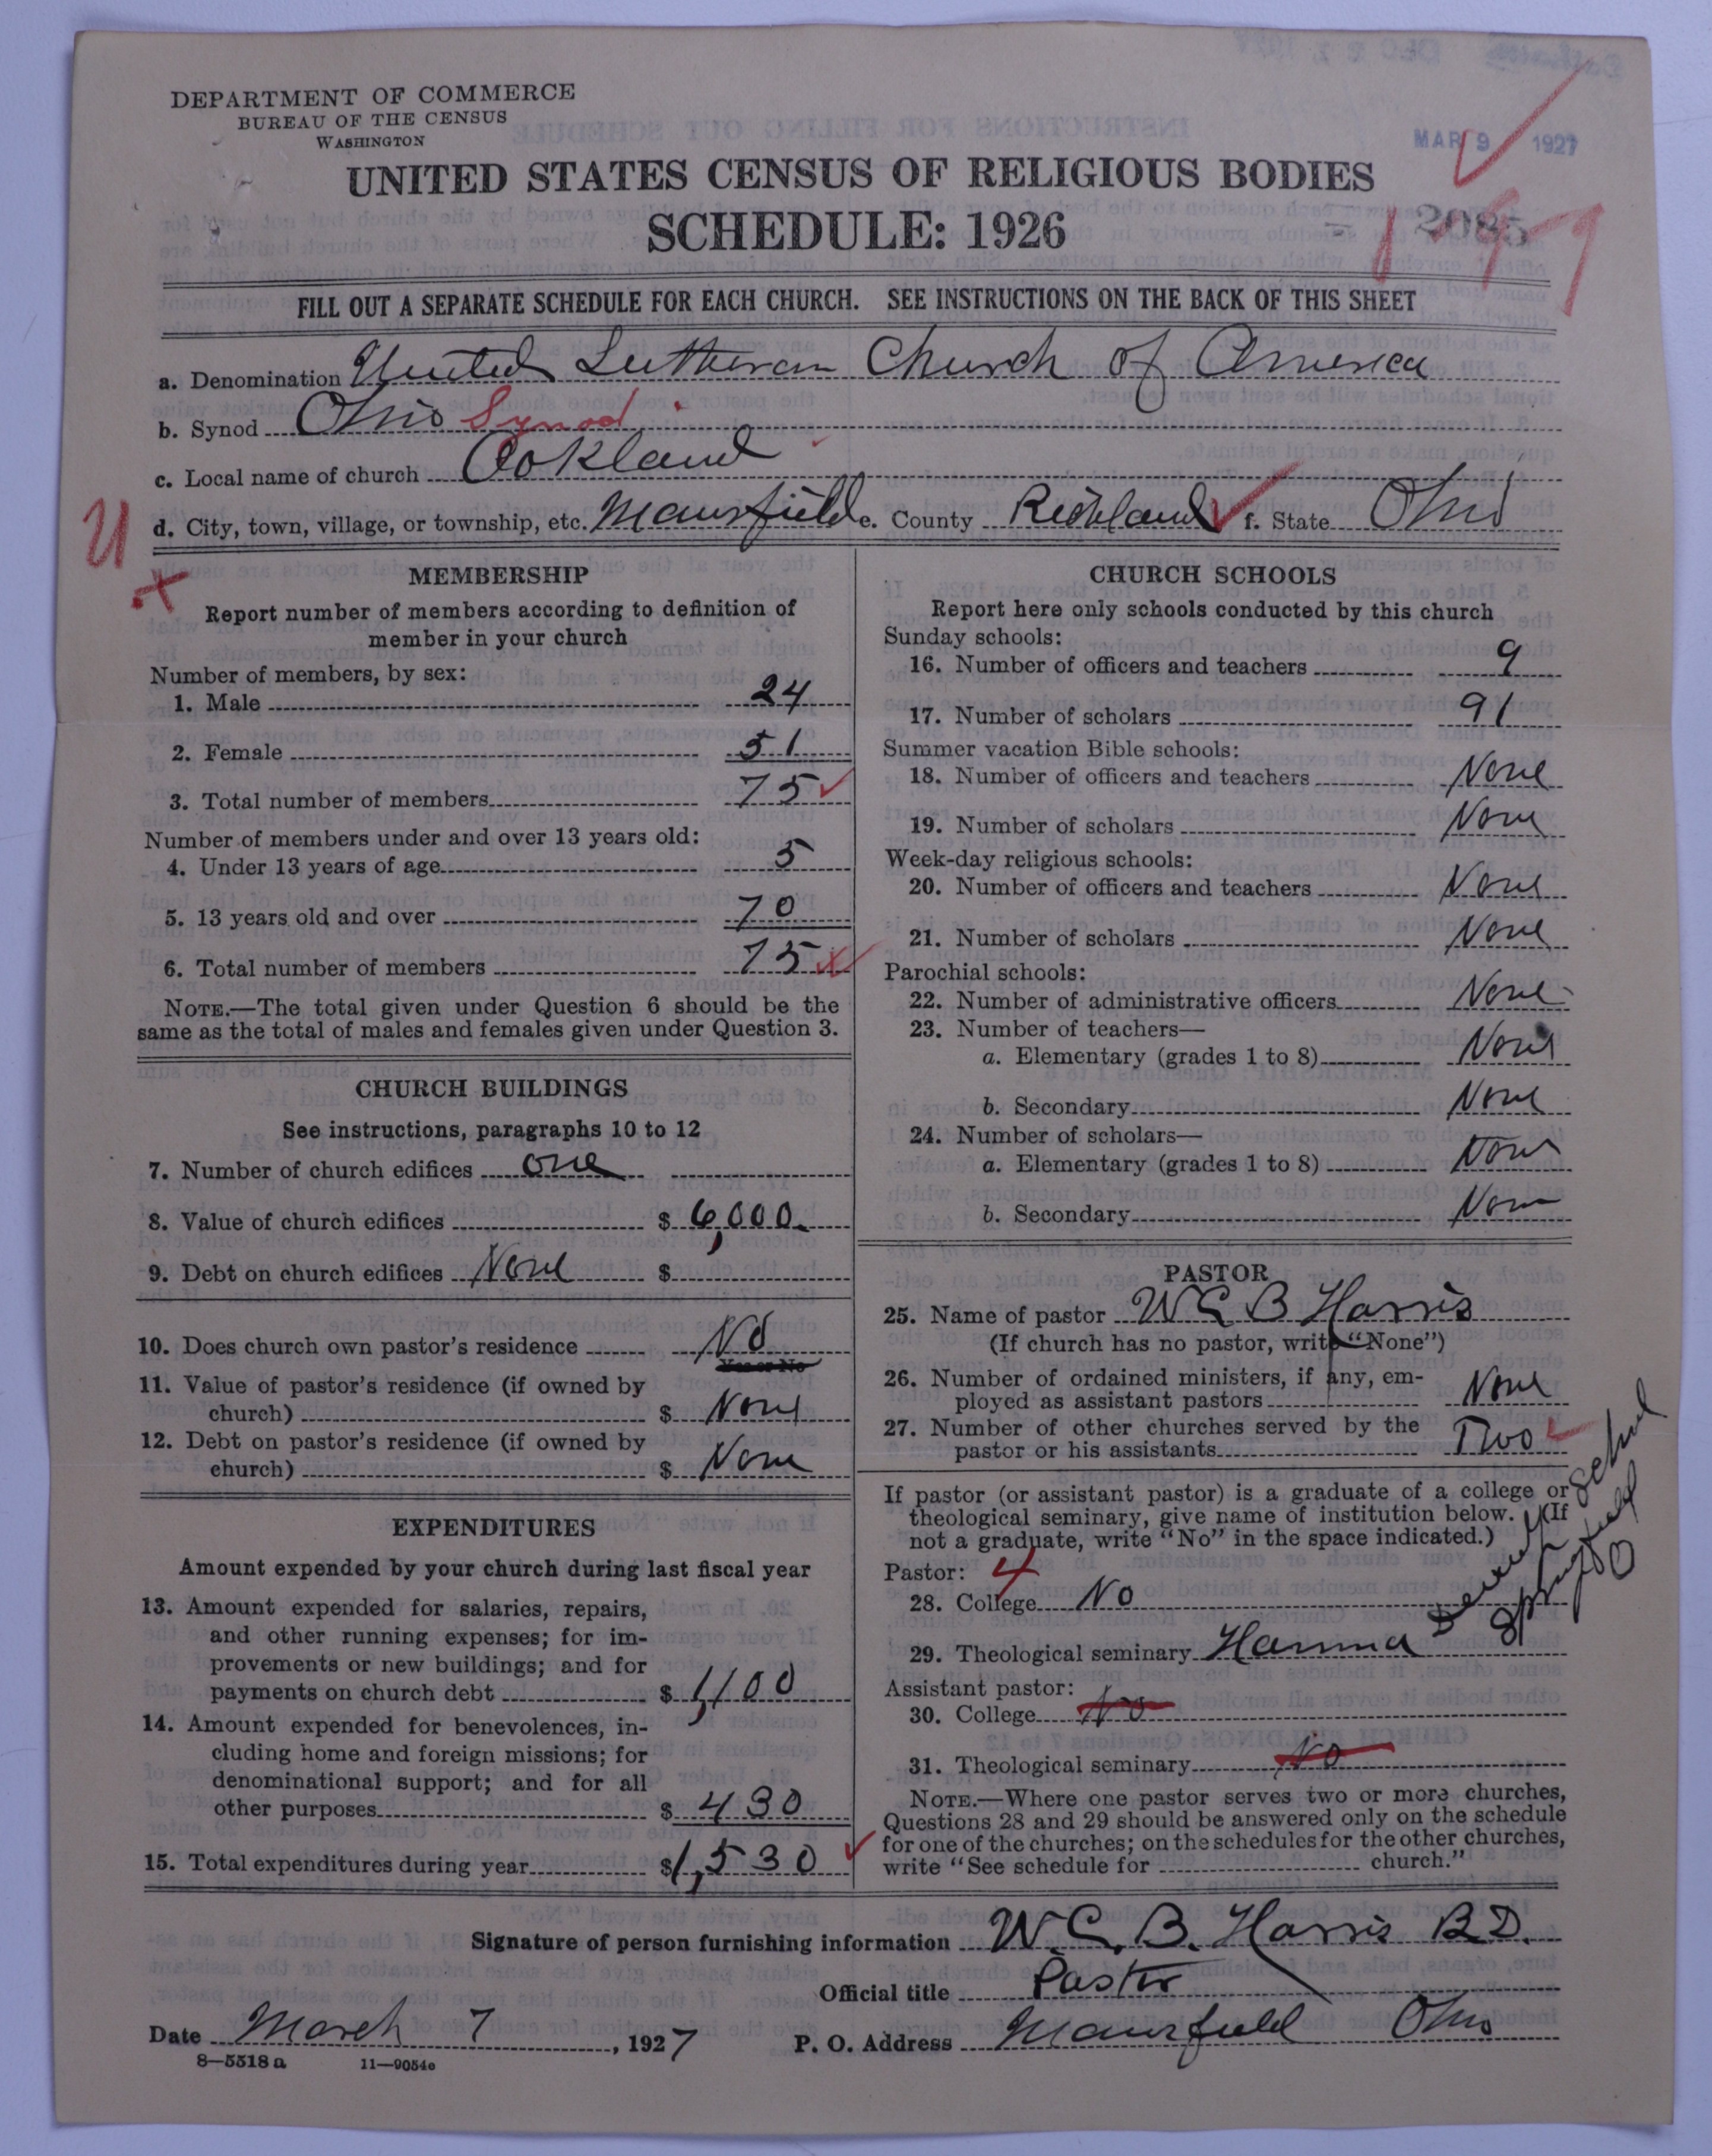 DEPARTMENT OF COMMERCE
BUREAU OF THE CENSUS
WASHINGTON
MAR 9 1927
UNITED STATES CENSUS OF RELIGIOUS BODIES
SCHEDULE: 1926
2085
FILL OUT A SEPARATE SCHEDULE FOR EACH CHURCH. SEE INSTRUCTIONS ON THE BACK OF THIS SHEET
a. Denomination United Lutheran Church of America
b. Synod Ohio Synod
c. Local name of church Oakland
d. City, town, village, or township, etc. Mansfield e. County Richland f. State Ohio
MEMBERSHIP
Report number of members according to definition of
member in your church
Number of members, by sex:
1. Male 24
2. Female 51
3. Total number of members 75
Number of members under and over 13 years old:
4. Under 13 years of age 5
5. 13 years old and over 70
6. Total number of members 75
NOTE.—The total given under Question 6 should be the
same as the total of males and females given under Question 3.
CHURCH BUILDINGS
See instructions, paragraphs 10 to 12
7. Number of church edifices one
8. Value of church edifices $ 6,000.
9. Debt on church edifices None $
10. Does church own pastor's residence No
Yes or No
11. Value of pastor's residence (if owned by
church) $ None
12. Debt on pastor's residence (if owned by
church) $ None
EXPENDITURES
Amount expended by your church during last fiscal year
13. Amount expended for salaries, repairs,
and other running expenses; for im-
provements or new buildings; and for
payments on church debt $ 1,100
14. Amount expended for benevolences, in-
cluding home and foreign missions; for
denominational support; and for all
other purposes $ 430
15. Total expenditures during year $ 1,530
CHURCH SCHOOLS
Report here only schools conducted by this church
Sunday schools:
16. Number of officers and teachers 9
17. Number of scholars 91
Summer vacation Bible schools:
18. Number of officers and teachers None
19. Number of scholars None
Week-day religious schools:
20. Number of officers and teachers None
21. Number of scholars None
Parochial schools:
22. Number of administrative officers None
23. Number of teachers—
a. Elementary (grades 1 to 8) None
b. Secondary None
24. Number of scholars—
a. Elementary (grades 1 to 8) None
b. Secondary None
PASTOR
25. Name of pastor W C B Harris
(If church has no pastor, write "None")
26. Number of ordained ministers, if any, em-
ployed as assistant pastors None
27. Number of other churches served by the
pastor or his assistants Two
If pastor (or assistant pastor) is a graduate of a college or
theological seminary, give name of institution below. (If
not a graduate, write "No" in the space indicated.)
Pastor: 4
28. College No
29. Theological seminary Hamma Divinity School
Springfield
O
Assistant pastor:
30. College No
31. Theological seminary No
NOTE.—Where one pastor serves two or more churches,
Questions 28 and 29 should be answered only on the schedule
for one of the churches; on the schedules for the other churches,
write "See schedule for church."
Signature of person furnishing information W. C. B. Harris B.D.
Official title Pastor
Date March 7, 1927 P. O. Address Mansfield Ohio
8—5518 a 11—9054e